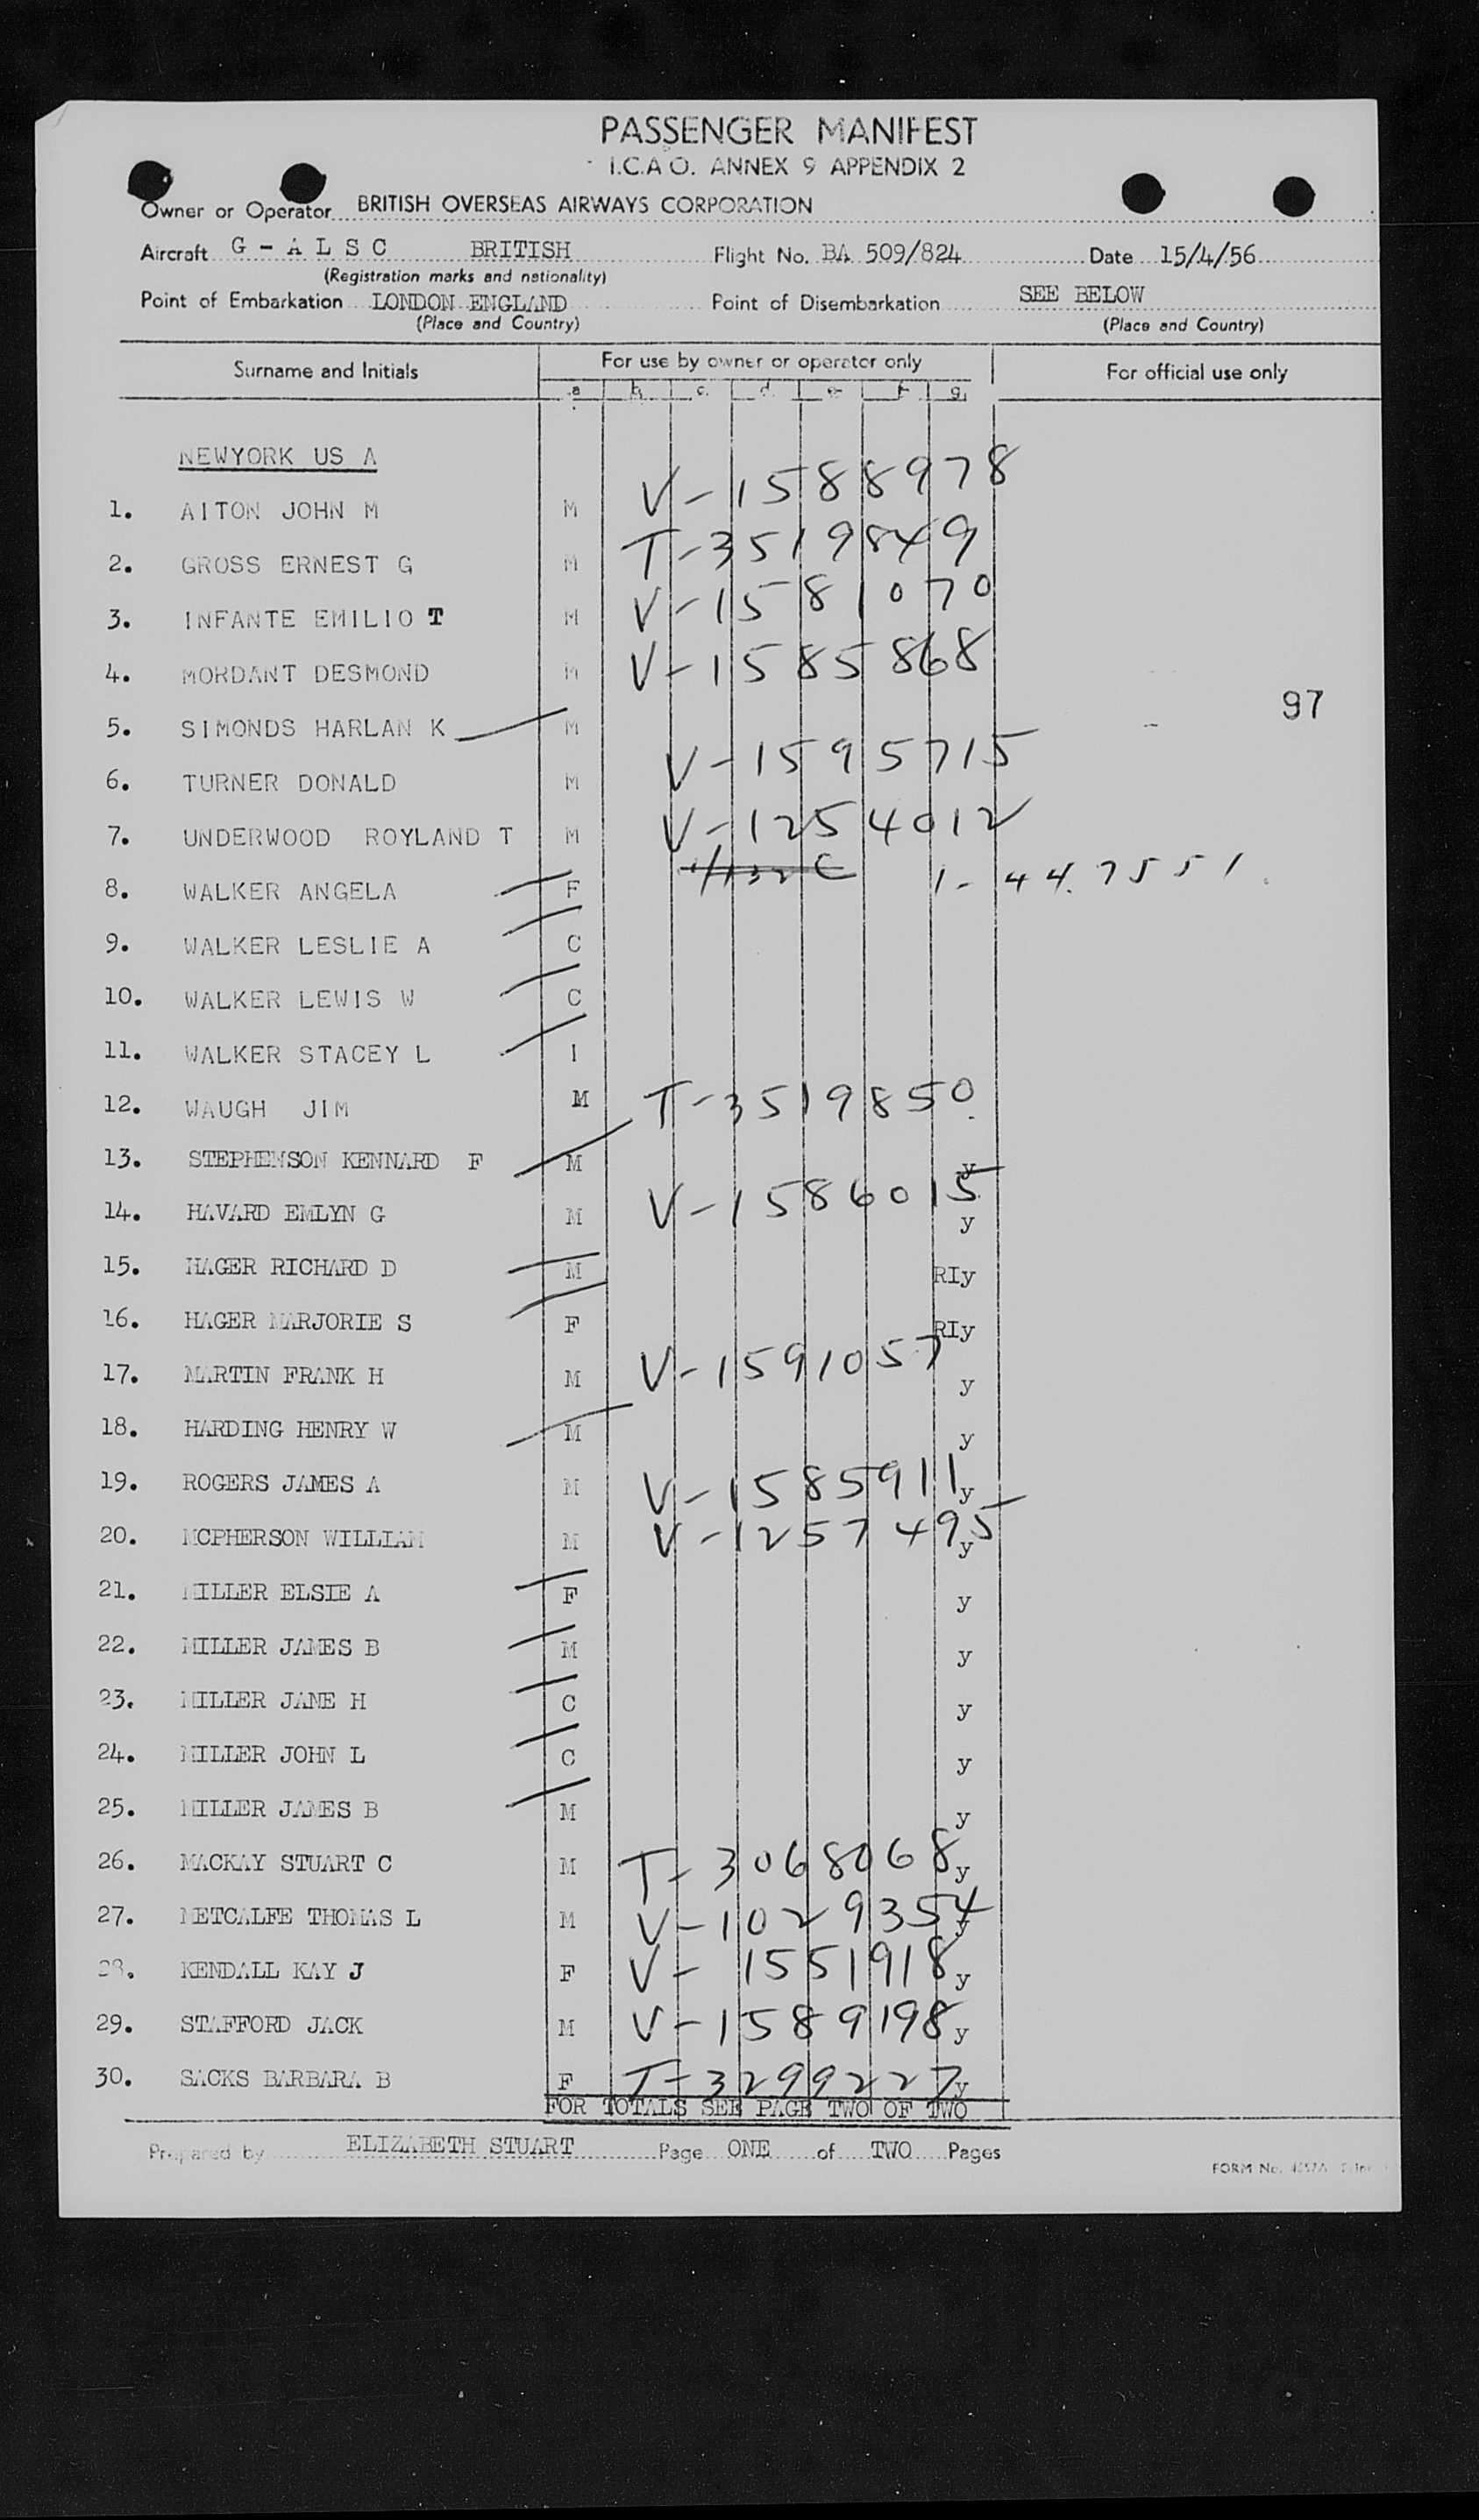 PASSENGER MANIFEST
I.C.A.O. ANNEX 9 APPENDIX 2
Owner or Operator BRITISH OVERSEAS AIRWAYS CORPORATION
Aircraft G - A L S C BRITISH Flight No. BA 509/824 Date 15/4/56
(Registration marks and nationality)
Point of Embarkation LONDON ENGLAND Point of Disembarkation SEE BELOW
(Place and Country) (Place and Country)
Surname and Initials For use by owner or operator only For official use only
a b c d e f g
NEWYORK US A
1. AITON JOHN M M V-1588978
2. GROSS ERNEST G M T-3519849
3. INFANTE EMILIO T M V-1581070
4. MORDANT DESMOND M V-1585868
97
5. SIMONDS HARLAN K M
6. TURNER DONALD M V-1595715
7. UNDERWOOD ROYLAND T M V-1254012
8. WALKER ANGELA F 1-447551
9. WALKER LESLIE A C
10. WALKER LEWIS W C
11. WALKER STACEY L I
12. WAUGH JIM M T-3519850
13. STEPHENSON KENNARD F M y
14. HAVARD EMLYN G M V-1586015 y
15. HAGER RICHARD D M RIy
16. HAGER MARJORIE S F RIy
17. MARTIN FRANK H M V-1591057 y
18. HARDING HENRY W M y
19. ROGERS JAMES A M V-1585911 y
20. MCPHERSON WILLIAM M V-1257495 y
21. MILLER ELSIE A F y
22. MILLER JAMES B M y
23. MILLER JANE H C y
24. MILLER JOHN L C y
25. MILLER JAMES B M y
26. MACKAY STUART C M T-3068068 y
27. METCALFE THOMAS L M V-1029354 y
28. KENDALL KAY J F V-1551918 y
29. STAFFORD JACK M V-1589198 y
30. SACKS BARBARA B F T-3299227 y
FOR TOTALS SEE PAGE TWO OF TWO
Prepared by ELIZABETH STUART Page ONE of TWO Pages
FORM No.